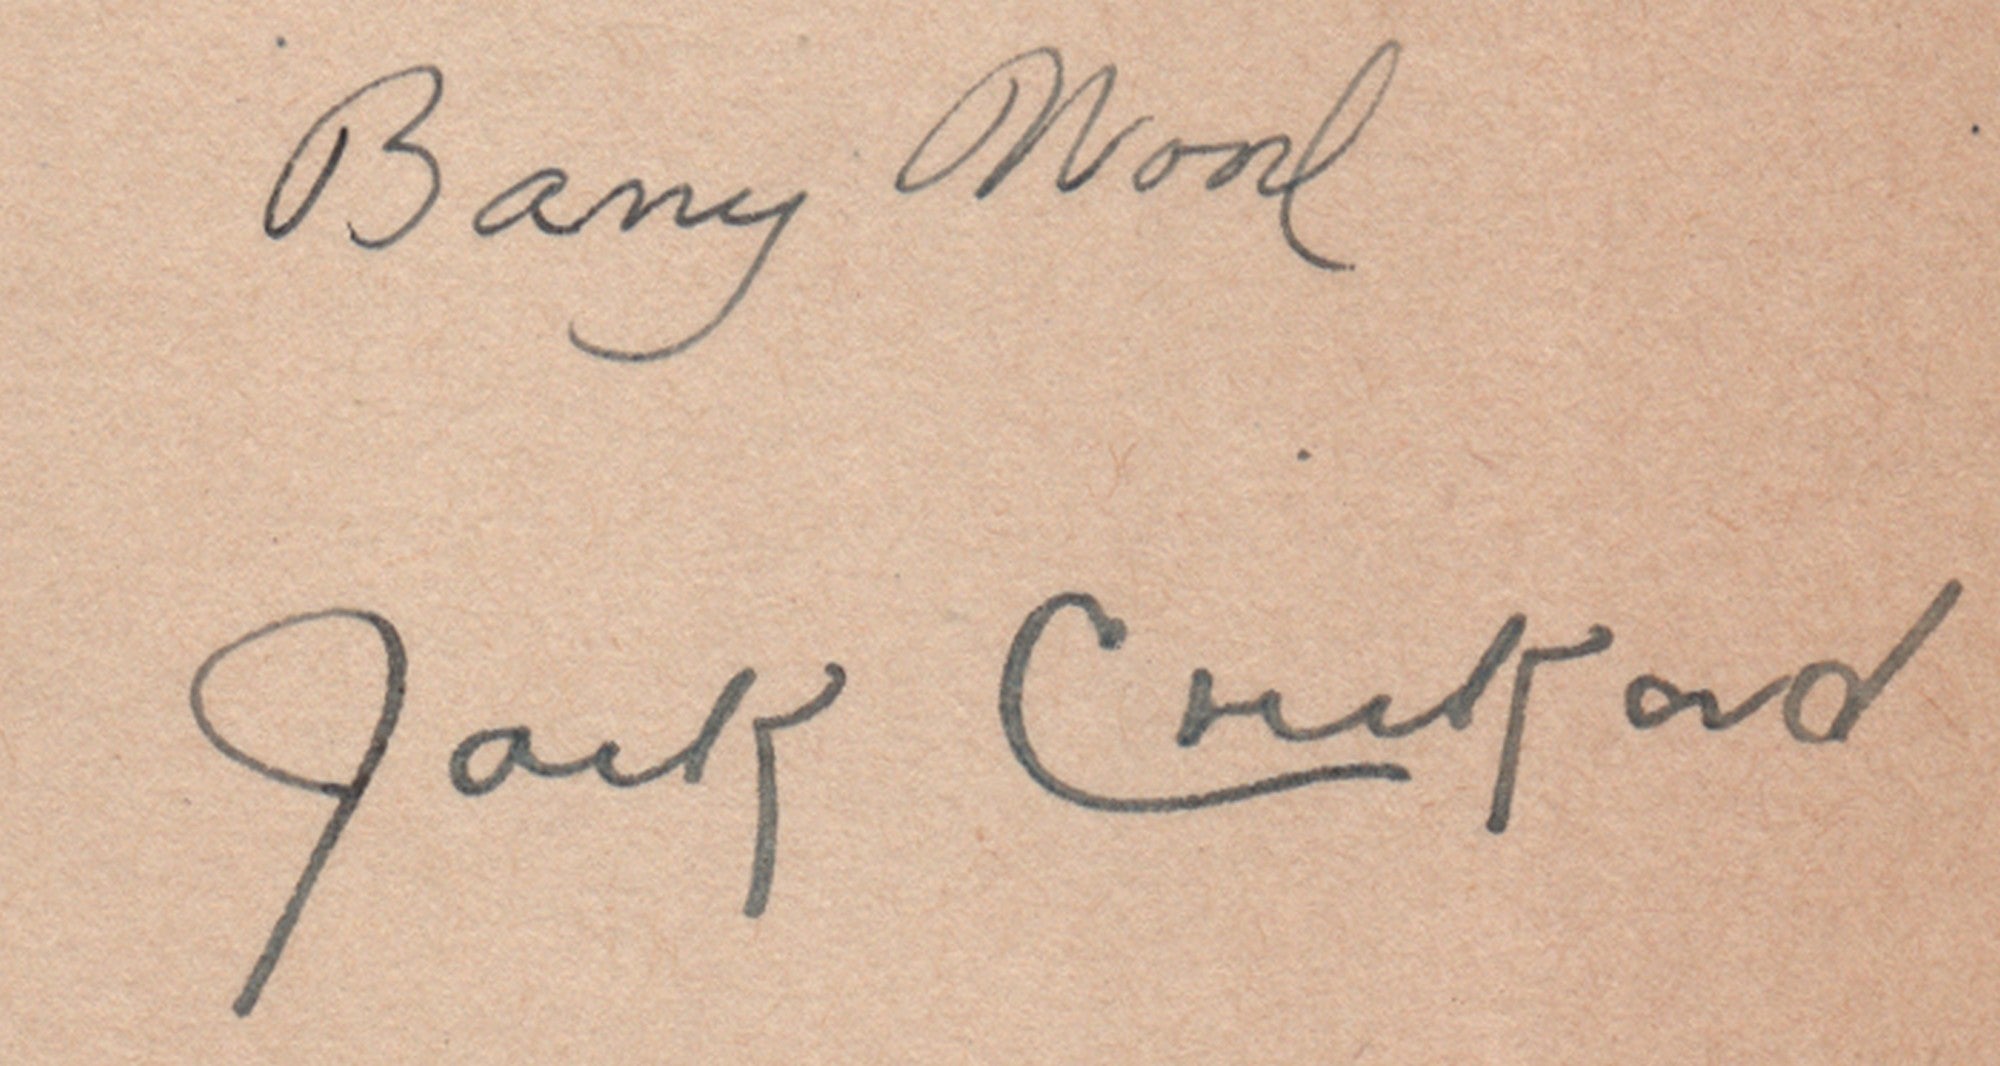 Barry Wood
Jack Crickard